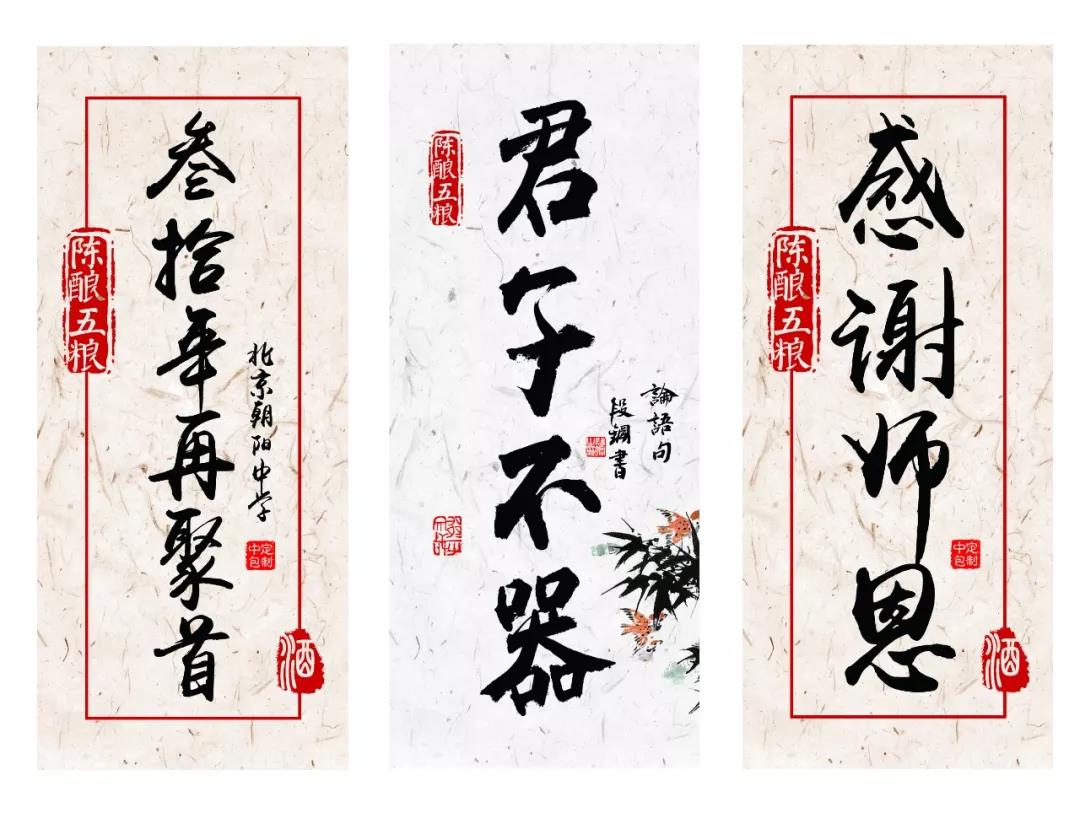 叁拾年再聚首
北京朝阳中学
陈酿五粮
定制
中包
酒
君子不器
論語句
段鋼書
陈酿五粮
感谢师恩
陈酿五粮
定制
中包
酒